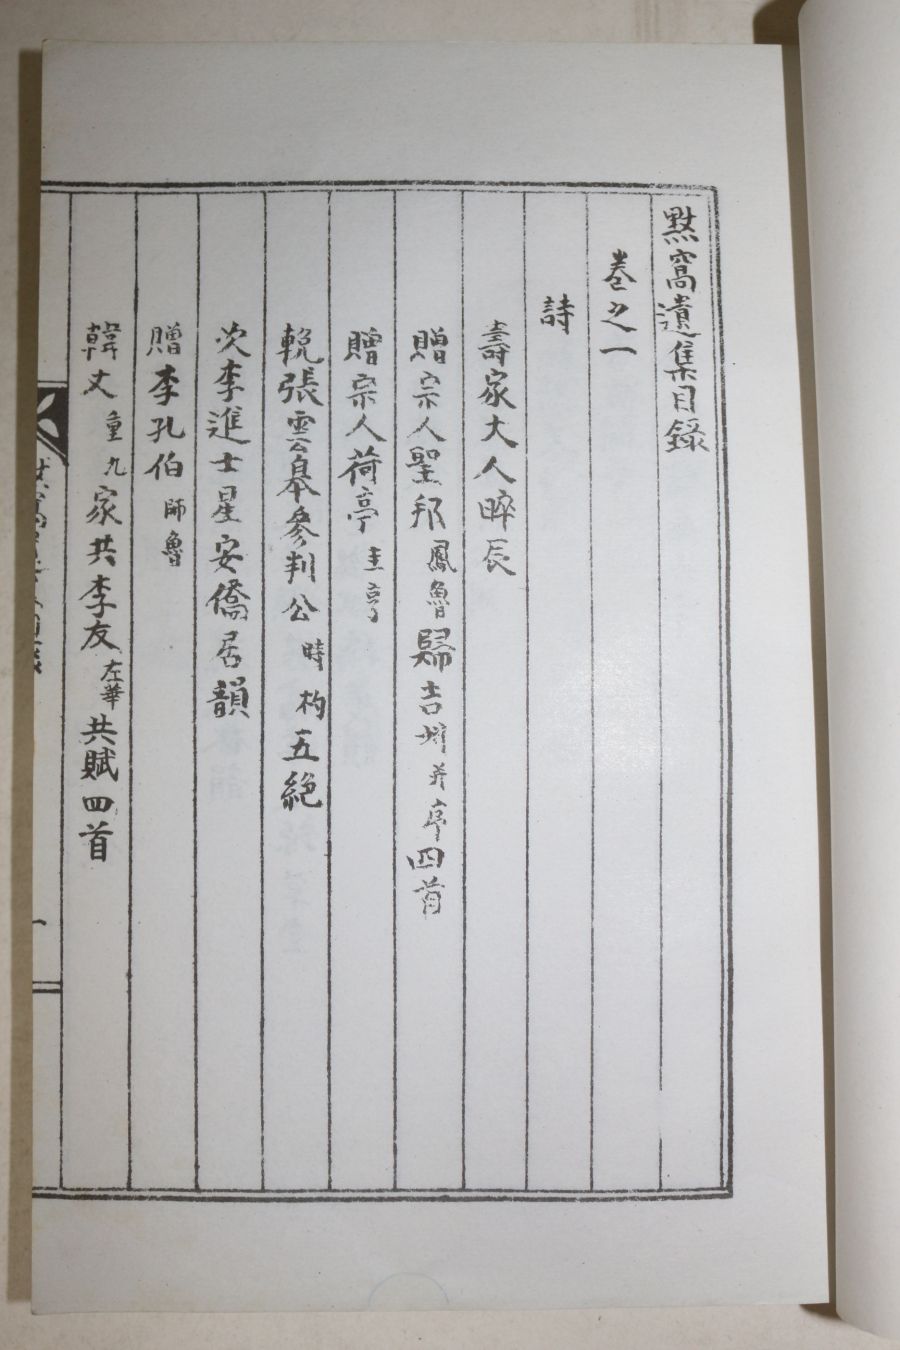 默窩遺集目錄
卷之一
詩
壽家大人晬辰
贈宗人聖邦鳳魯歸吉州并序四首
贈宗人荷亭圭亨
輓張雲皐參判公時杓五絶
次李進士星安僑居韻
贈李孔伯師魯
韓丈重九家共李友左華共賦四首